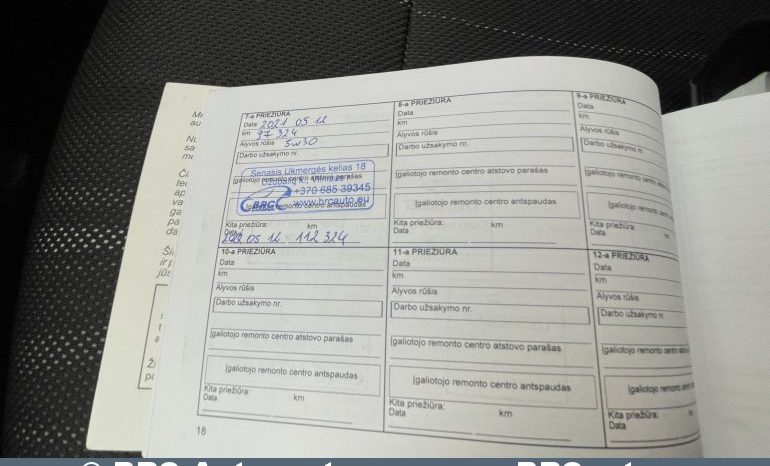 7-a PRIEŽIŪRA
Data 2021 05 12
km 97 324
Alyvos rūšis 5w30
Darbo užsakymo nr.
Senasis Ukmergės kelias 18
Įgaliotojo remonto centro atstovo parašas
+370 685 39345
BRC www.brcauto.eu
Įgaliotojo remonto centro antspaudas
Kita priežiūra: km
Data
05 12 112 324
8-a PRIEŽIŪRA
Data
km
Alyvos rūšis
Darbo užsakymo nr.
Įgaliotojo remonto centro atstovo parašas
Įgaliotojo remonto centro antspaudas
Kita priežiūra: km
Data
9-a PRIEŽIŪRA
Data
km
Alyvos rūšis
Darbo užsakymo nr.
Įgaliotojo remonto centro
Įgaliotojo remonto
Kita priežiūra:
Data
10-a PRIEŽIŪRA
Data
km
Alyvos rūšis
Darbo užsakymo nr.
Įgaliotojo remonto centro atstovo parašas
Įgaliotojo remonto centro antspaudas
Kita priežiūra: km
Data
11-a PRIEŽIŪRA
Data
km
Alyvos rūšis
Darbo užsakymo nr.
Įgaliotojo remonto centro atstovo parašas
Įgaliotojo remonto centro antspaudas
Kita priežiūra: km
Data
12-a PRIEŽIŪRA
Data
km
Alyvos rūšis
Darbo užsakymo nr.
Įgaliotojo remonto centro
Įgaliotojo remonto
Kita priežiūra:
Data
18